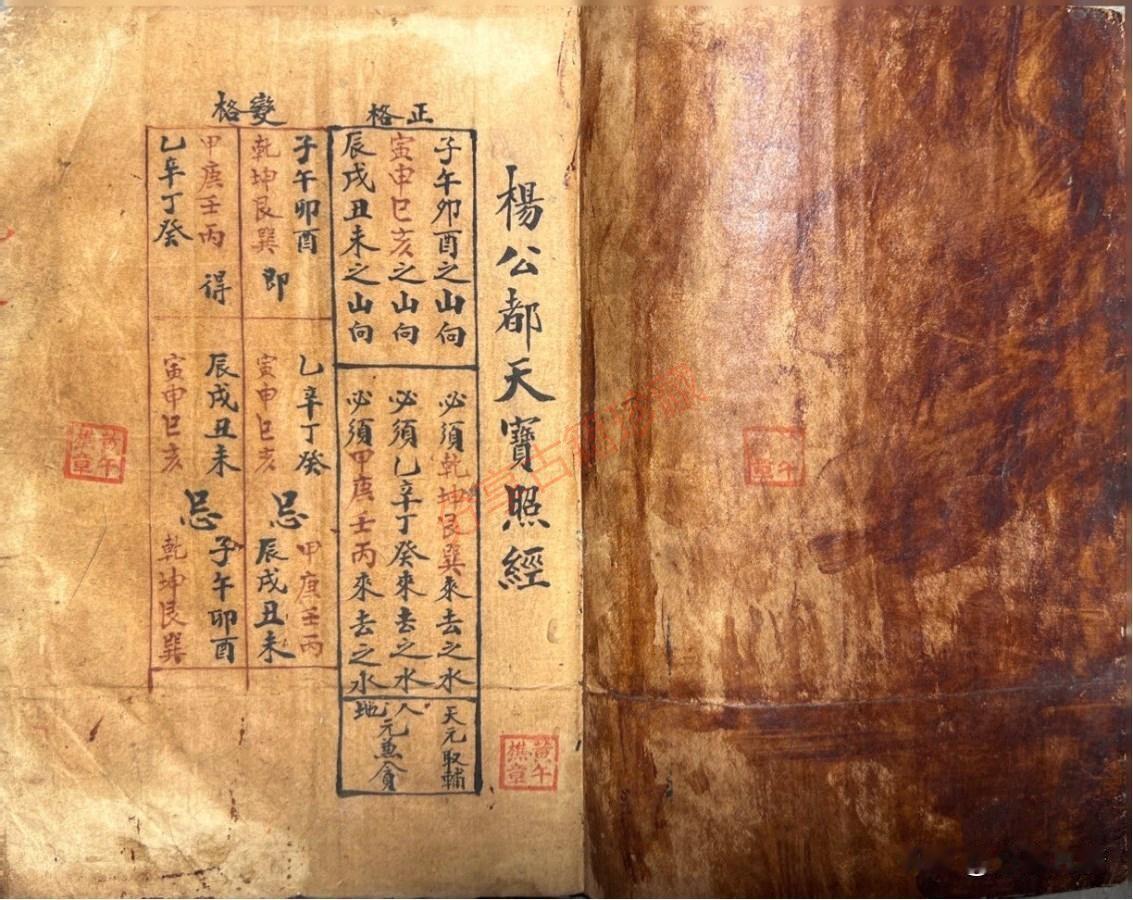 楊公都天寶照經
正格
子午卯酉之山向
必須乾坤艮巽來去之水
天元取輔
寅申巳亥之山向
必須乙辛丁癸來去之水
辰戌丑未之山向
必須甲庚壬丙來去之水
人地
元兼貪
變格
子午卯酉
乾坤艮巽 即
乙辛丁癸
寅申巳亥
忌
甲庚壬丙
辰戌丑未
甲庚壬丙 得
乙辛丁癸
辰戌丑未
寅申巳亥
忌
子午卯酉
乾坤艮巽